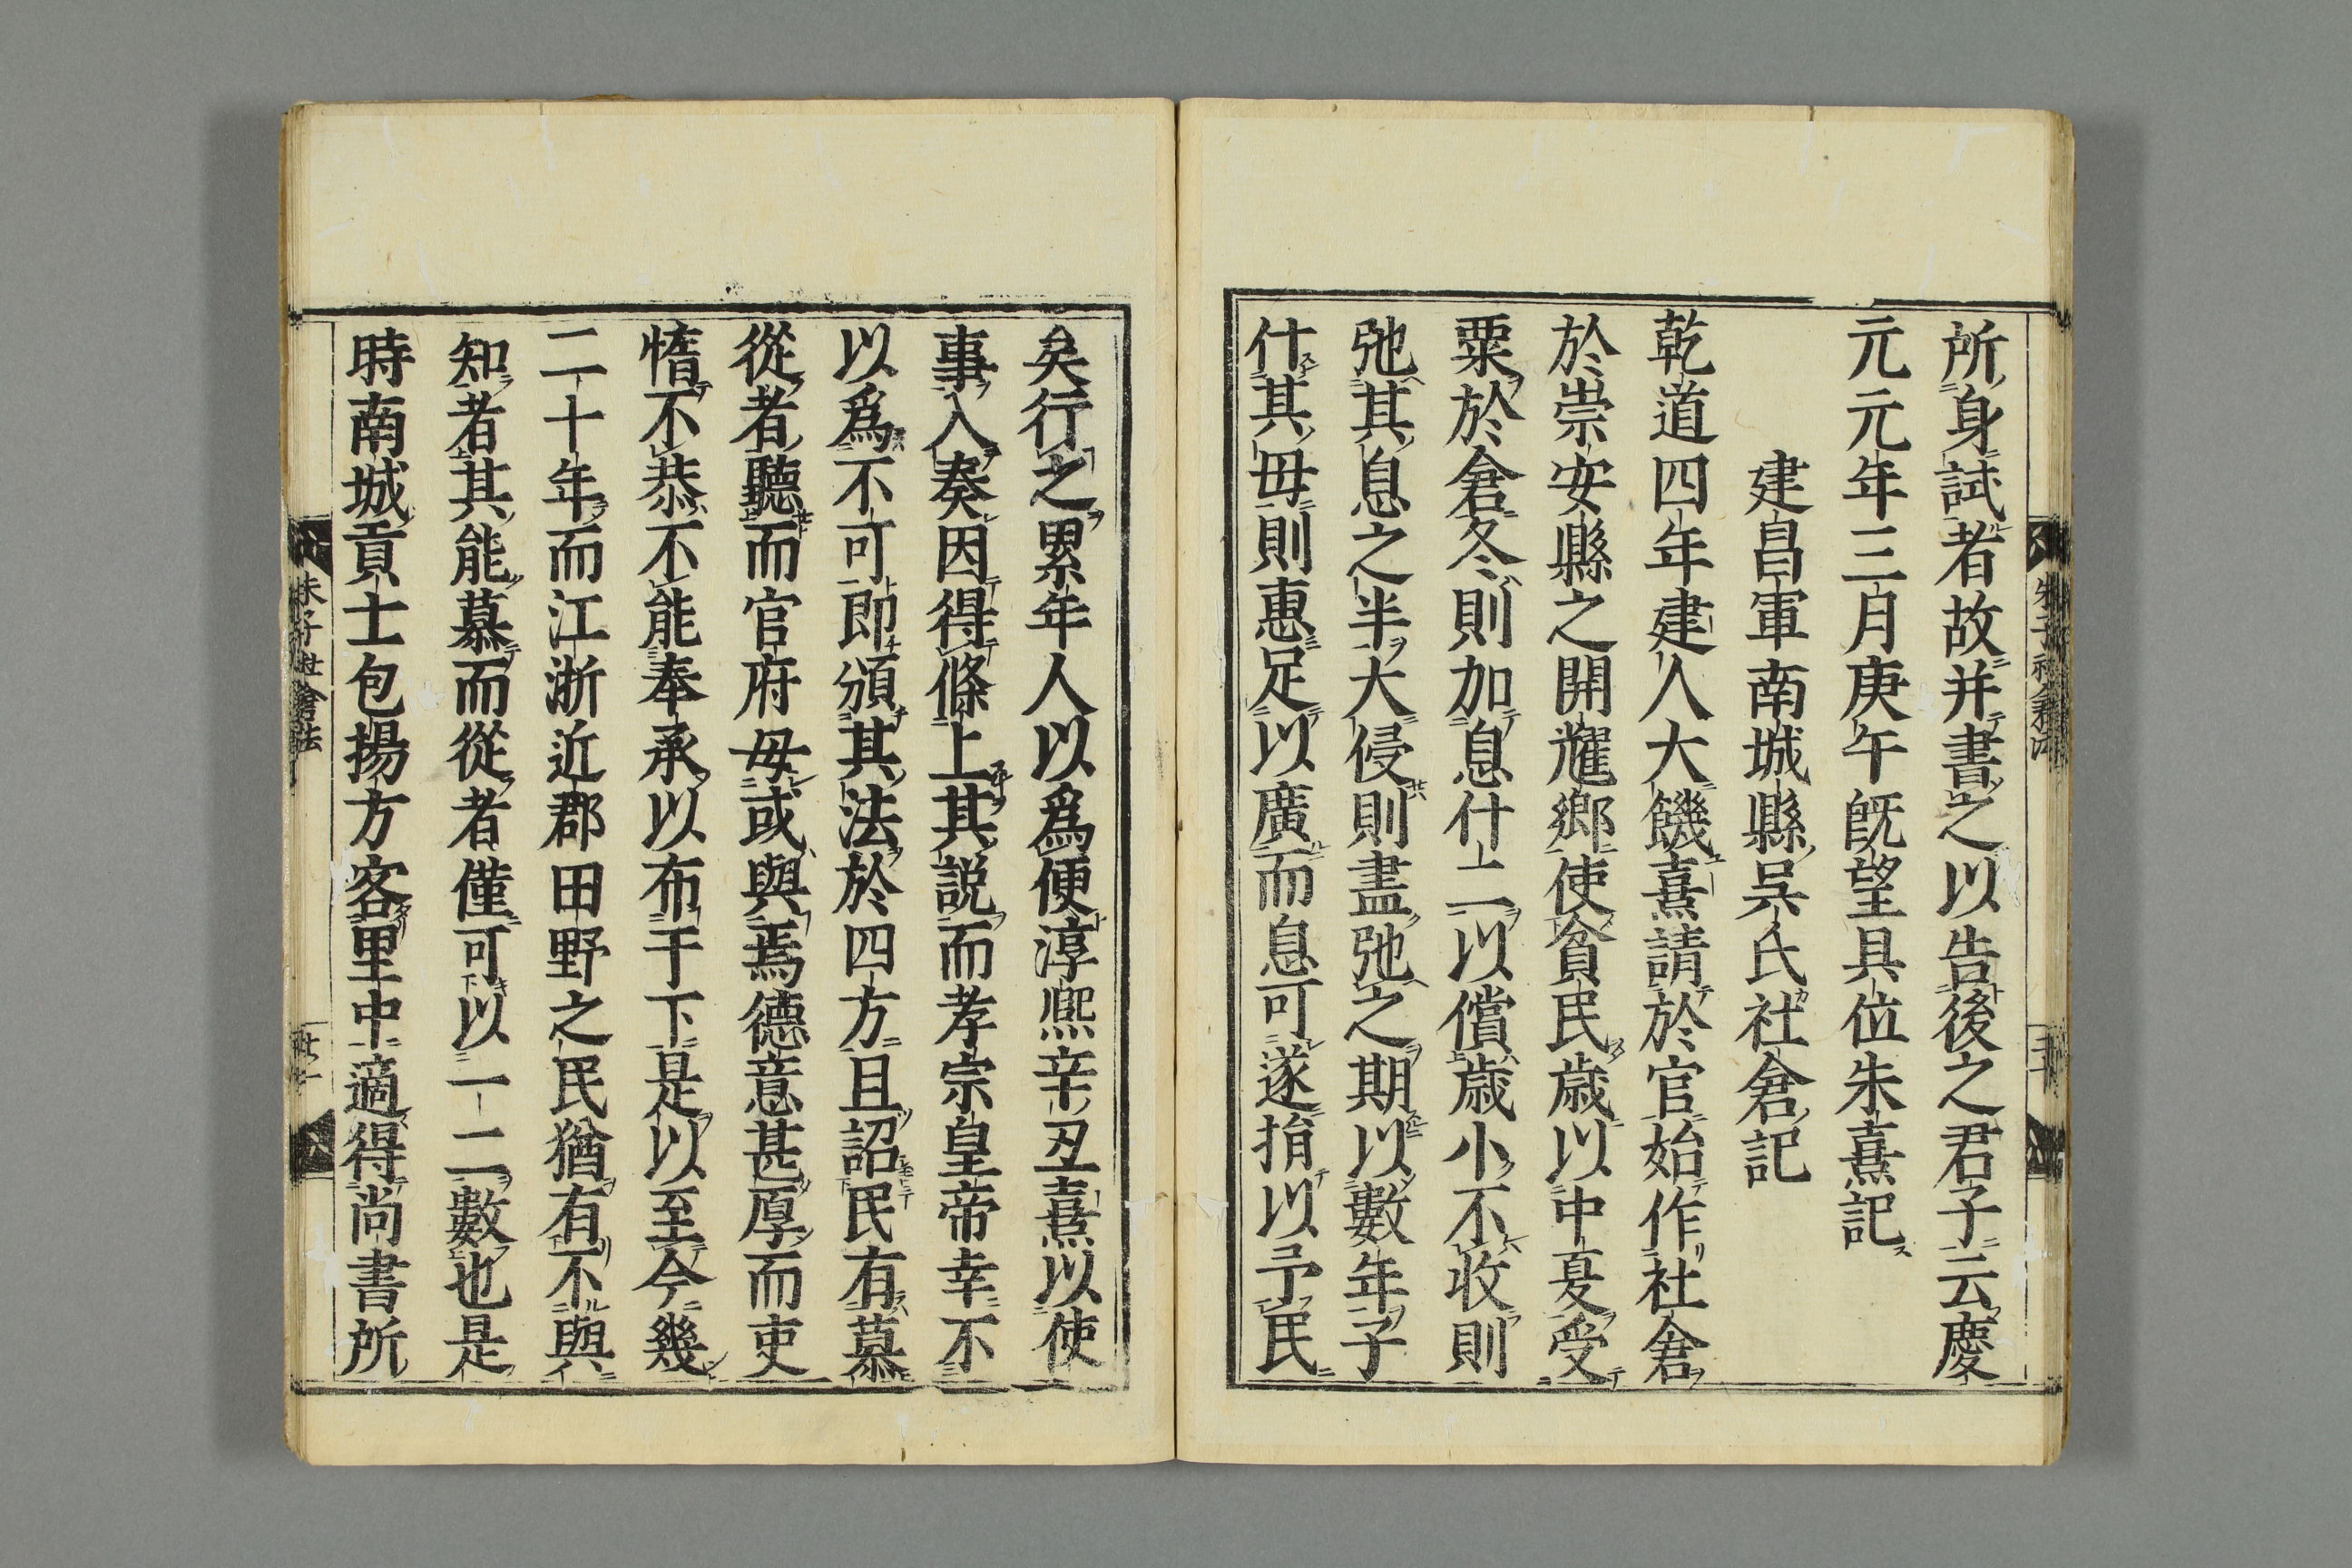 所身試者故并書之以告後之君子云慶
元元年三月庚午既望具位朱熹記
建昌軍南城縣吳氏社倉記
乾道四年建人大饑熹請於官始作社倉
於崇安縣之開耀鄉使貧民歳以中夏受
粟於倉冬則加息什二以償歳小不收則
弛其息之半大侵則盡弛之期以數年子
什其毋則惠足以廣而息可遂捐以予民
矣行之累年人以爲便淳熈辛丑熹以使
事入奏因得條上其説而孝宗皇帝幸不
以爲不可即頒其法於四方且詔民有慕
從者聽而官府毋或與焉德意甚厚而吏
惰不恭不能奉承以布于下是以至今幾
二十年而江浙近郡田野之民猶有不與
知者其能慕而從者僅可以一二數也是
時南城貢士包揚方客里中適得尚書所
朱子社倉法